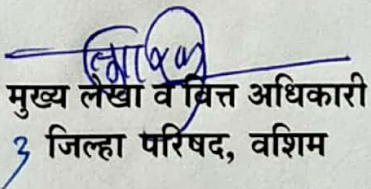 मुख्य लेखा व वित्त अधिकारी
3 जिल्हा परिषद, वशिम